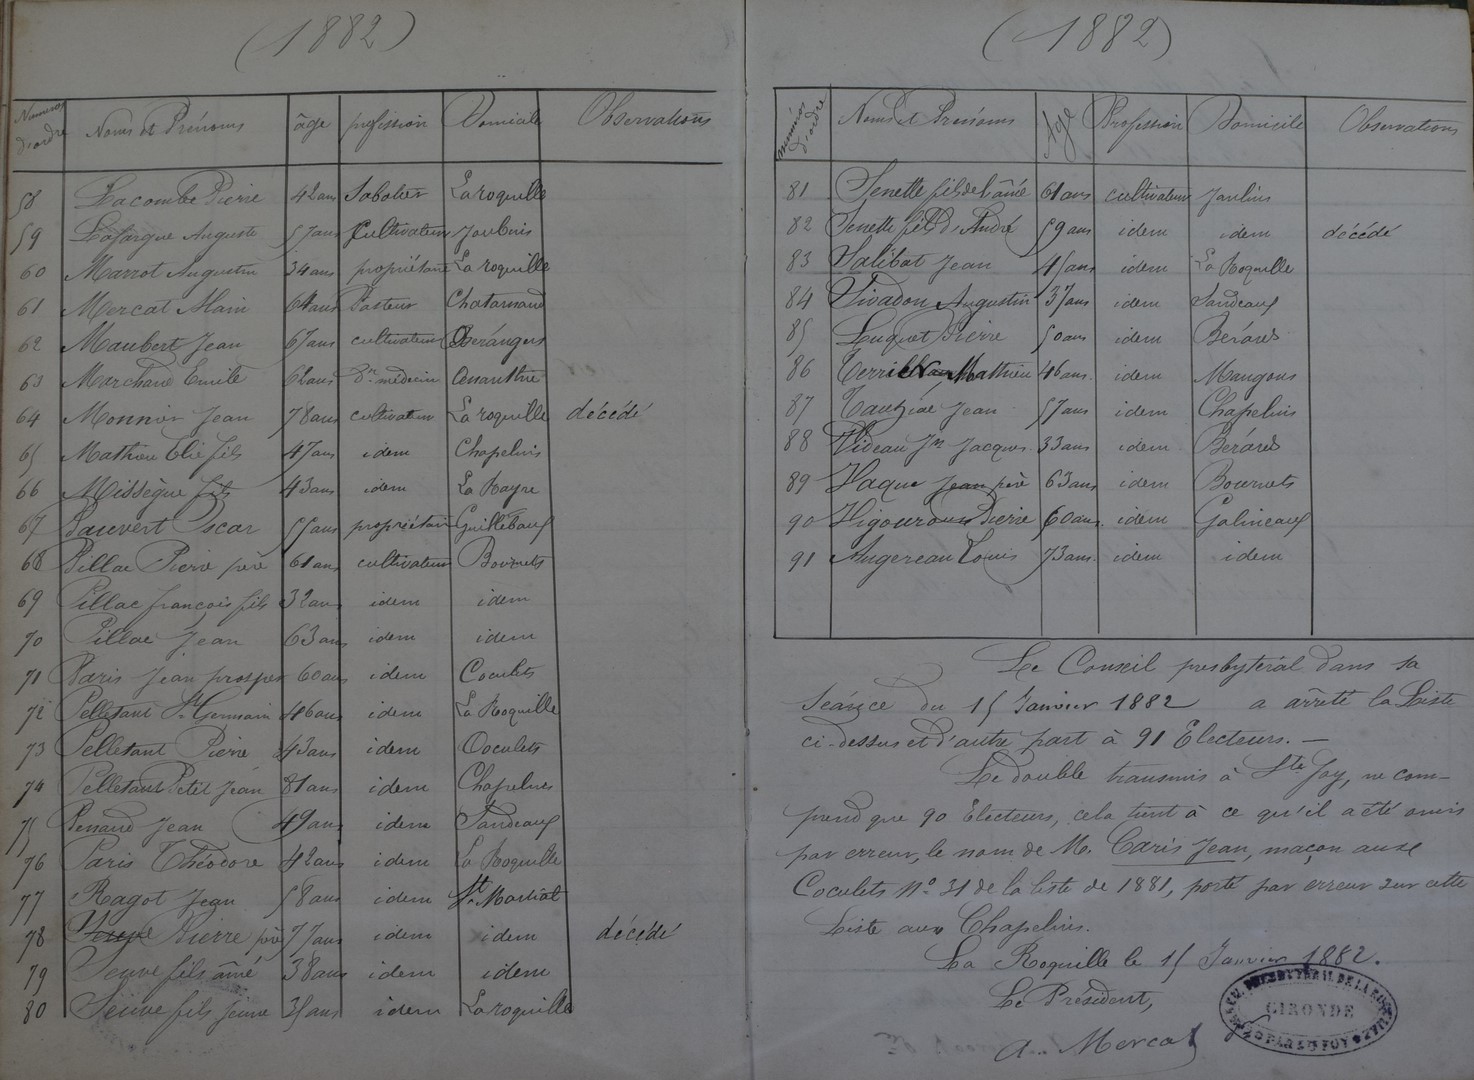 (1882)
Numéros d'ordre Noms et Prénoms âge profession Domicile Observations
58 Lacombe Pierre 42 ans Sabotier La roquille
59 Lafargue Auguste 57 ans Cultivateur Joulinis
60 Marrot Augustin 34 ans propriétaire La roquille
61 Mercat Alain 64 ans Pasteur
62 Maubert Jean 67 ans cultivateur Bérangers
63 Marchand Emile 62 ans Dr. médecin
64 Monnier Jean 78 ans cultivateur La roquille décédé
65 Mathieu Elie fils 47 ans idem Chapelins
66 Missègue fils 43 ans idem La Rayre
67 Pauvert Oscar 55 ans propriétaire Guillebaux
68 Pillac Pierre père 61 ans cultivateur Bournets
69 Pillac françois fils 32 ans idem idem
70 Pillac Jean 63 ans idem idem
71 Paris Jean prosper 60 ans idem Coculets
72 Pelletant St. Germain 46 ans idem La Roquille
73 Pelletant Pierre 43 ans idem Coculets
74 Pelletant Petit Jean 81 ans idem Chapelins
75 Jean 49 ans idem Tandeaux
76 Paris Théodore 42 ans idem La Roquille
77 Ragot Jean 58 ans idem St. Martial
78 Pierre père 77 ans idem idem décédé
79 Seuve fils aîné 38 ans idem idem
80 Seuve fils jeune 35 ans idem La roquille
(1882)
numéros d'ordre Noms et Prénoms Age Profession Domicile Observations
81 Senette fils de l'aîné 61 ans cultivateur Joulins
82 Senette fils d'André 59 ans idem idem décédé
83 Salibat Jean 45 ans idem La Roquille
84 Sivadon Augustin 37 ans idem Tandeaux
85 Luquot Pierre 50 ans idem Bérards
86 Mathieu 46 ans idem Maugons
87 Tauziac Jean 57 ans idem Chapelins
88 Videau Jn Jacques 33 ans idem Bérards
89 Vaque Jean père 63 ans idem Bournets
90 Vigouroux Pierre 60 ans idem Galineaux
91 Augereau Louis 73 ans idem idem
Le Conseil presbytéral dans sa
Séance du 15 Janvier 1882 a arrêté la Liste
ci-dessus et d'autre part à 91 Electeurs. —
Le double transmis à Ste Foy, ne com-
prend que 90 Electeurs, cela tient à ce qu'il a été omis
par erreur, le nom de M. Caris Jean, maçon aux
Coculets No. 31 de la liste de 1881, porté par erreur sur cette
Liste aux Chapelins.
La Roquille le 15 Janvier 1882.
Le Président,
A. Mercat
PRESBYTERAL DE LA ROQUILLE
GIRONDE
PAR Ste FOY